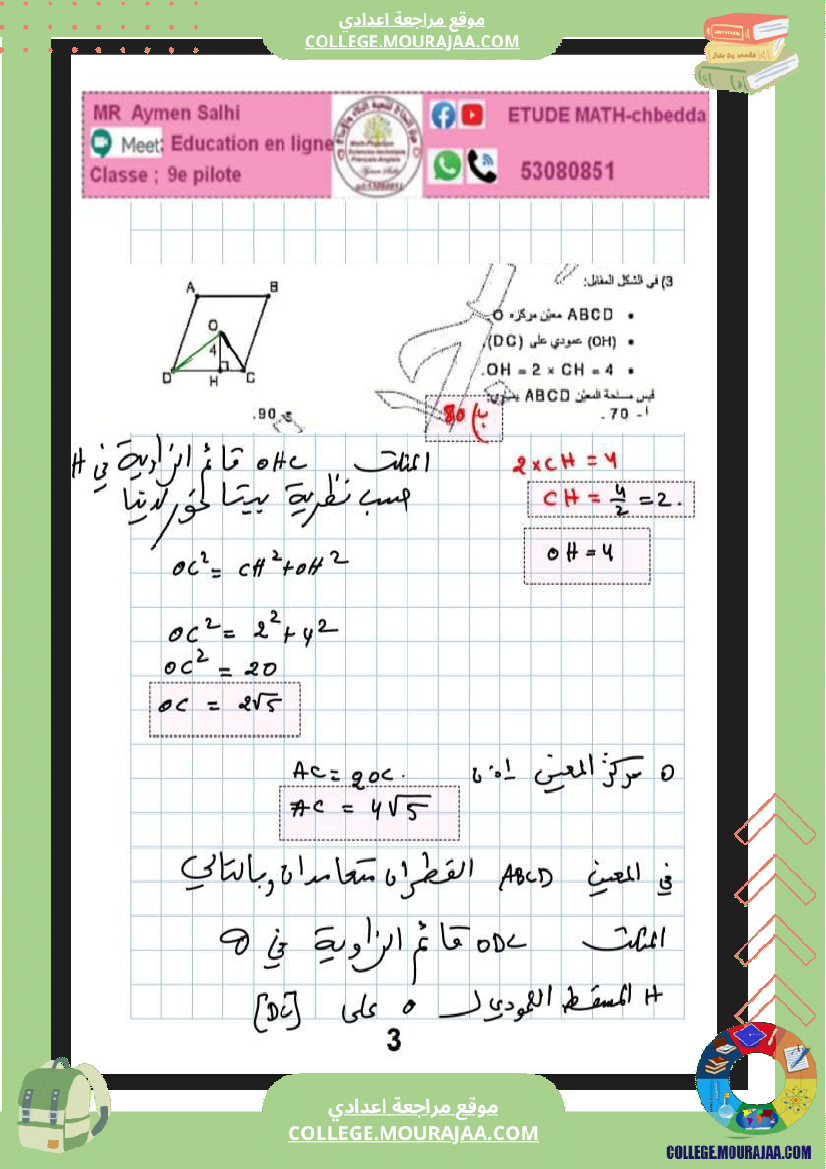 موقع مراجعة اعدادي
COLLEGE.MOURAJAA.COM
MR Aymen Salhi
Meet: Education en ligne
Classe ; 9e pilote
ETUDE MATH-chbedda
53080851
3) في الشكل المقابل:
• ABCD معيّن مركزه O
• (OH) عمودي على (DC).
• OH = 2 × CH = 4.
قيس مساحة المعيّن ABCD يساوي:
أ- 70.
ب) 80
ج- 90.
A B
O
4
D H C
المثلث OHC قائم الزاوية في H
حسب نظرية بيتاغور لدينا
2×CH = 4
CH = 4/2 = 2.
OH = 4
OC² = CH² + OH²
OC² = 2² + 4²
OC² = 20
OC = 2√5
O مركز المعين إذن
AC = 2OC.
AC = 4√5
في المعين ABCD القطران متعامدان وبالتالي
المثلث ODC قائم الزاوية في O
H المسقط العمودي لـ O على [DC]
3
موقع مراجعة اعدادي
COLLEGE.MOURAJAA.COM
COLLEGE.MOURAJAA.COM